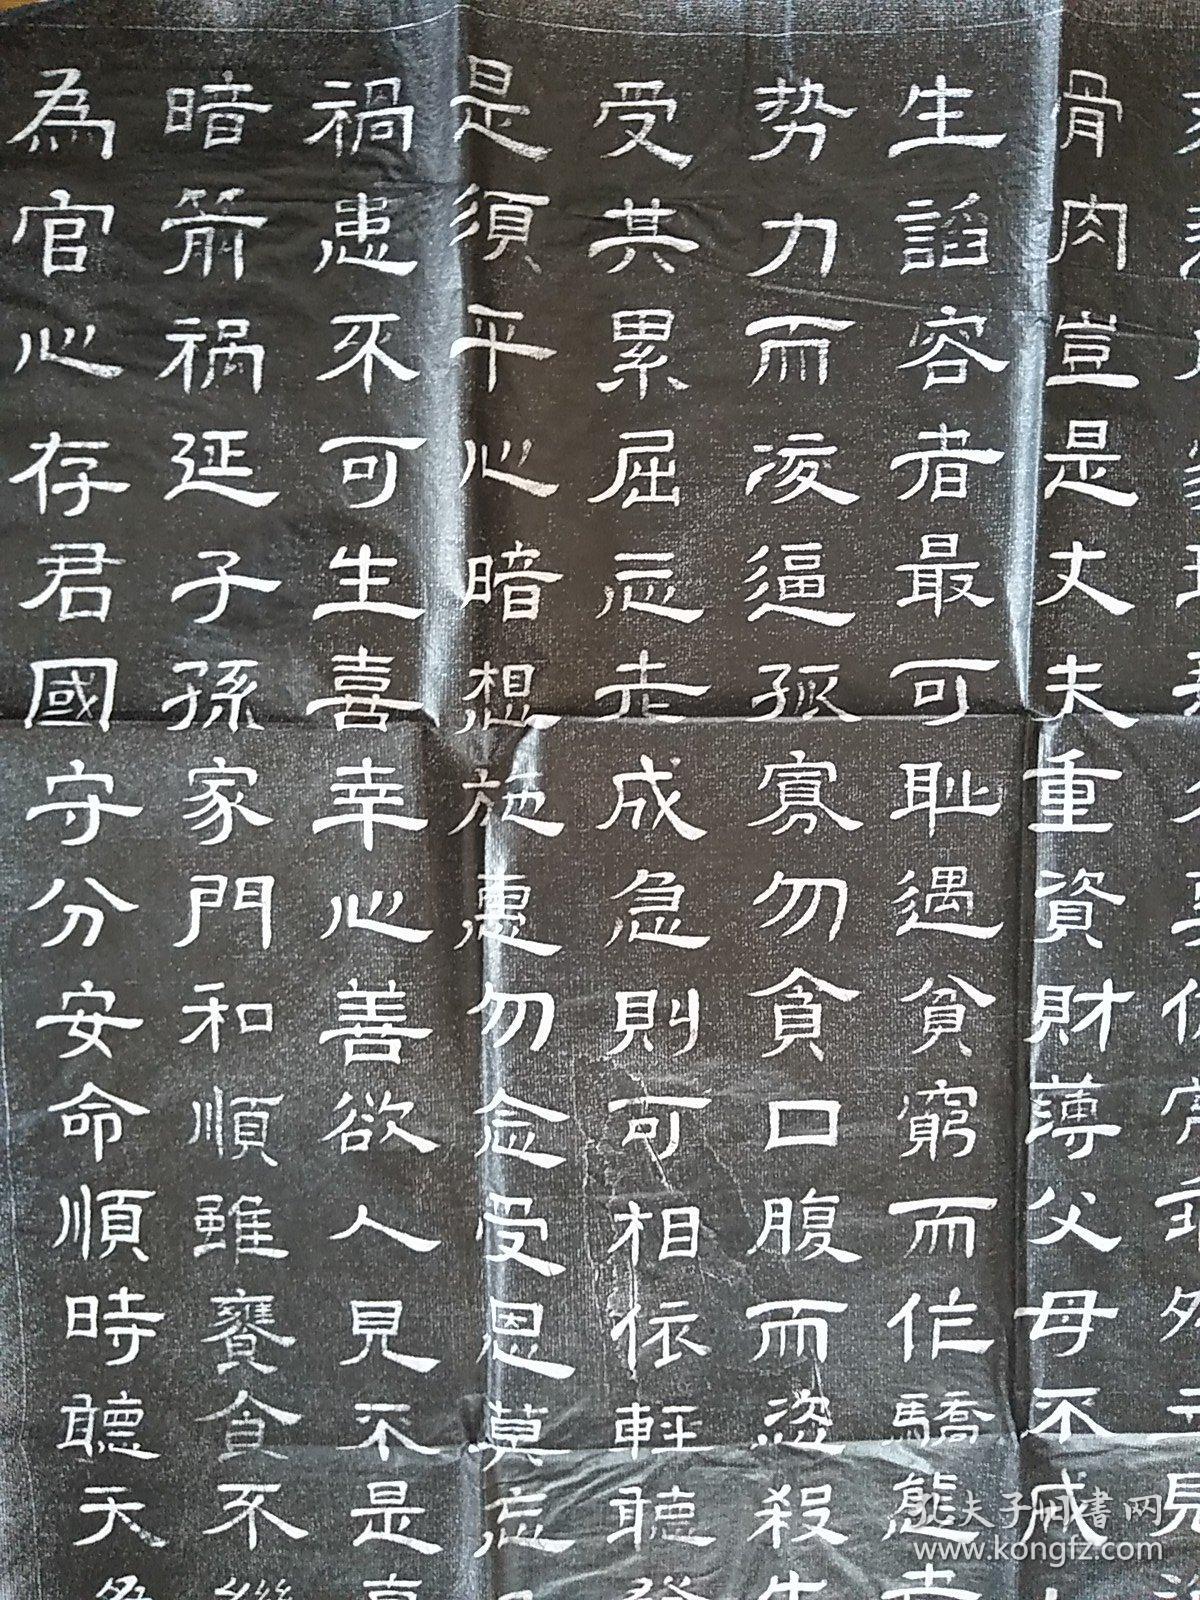 骨肉豈是丈夫重資財薄父母不成
生諂容者最可恥遇貧窮而作驕態
勢力而凌逼孤寡勿貪口腹而恣殺
受其累屈志老成急則可相依輕聽
是須平心暗想施惠勿念受恩莫忘
禍患不可生喜幸心善欲人見不是
暗箭禍延子孫家門和順雖饔飧不
為官心存君國守分安命順時聽天
孔夫子旧书网
www.kongfz.com